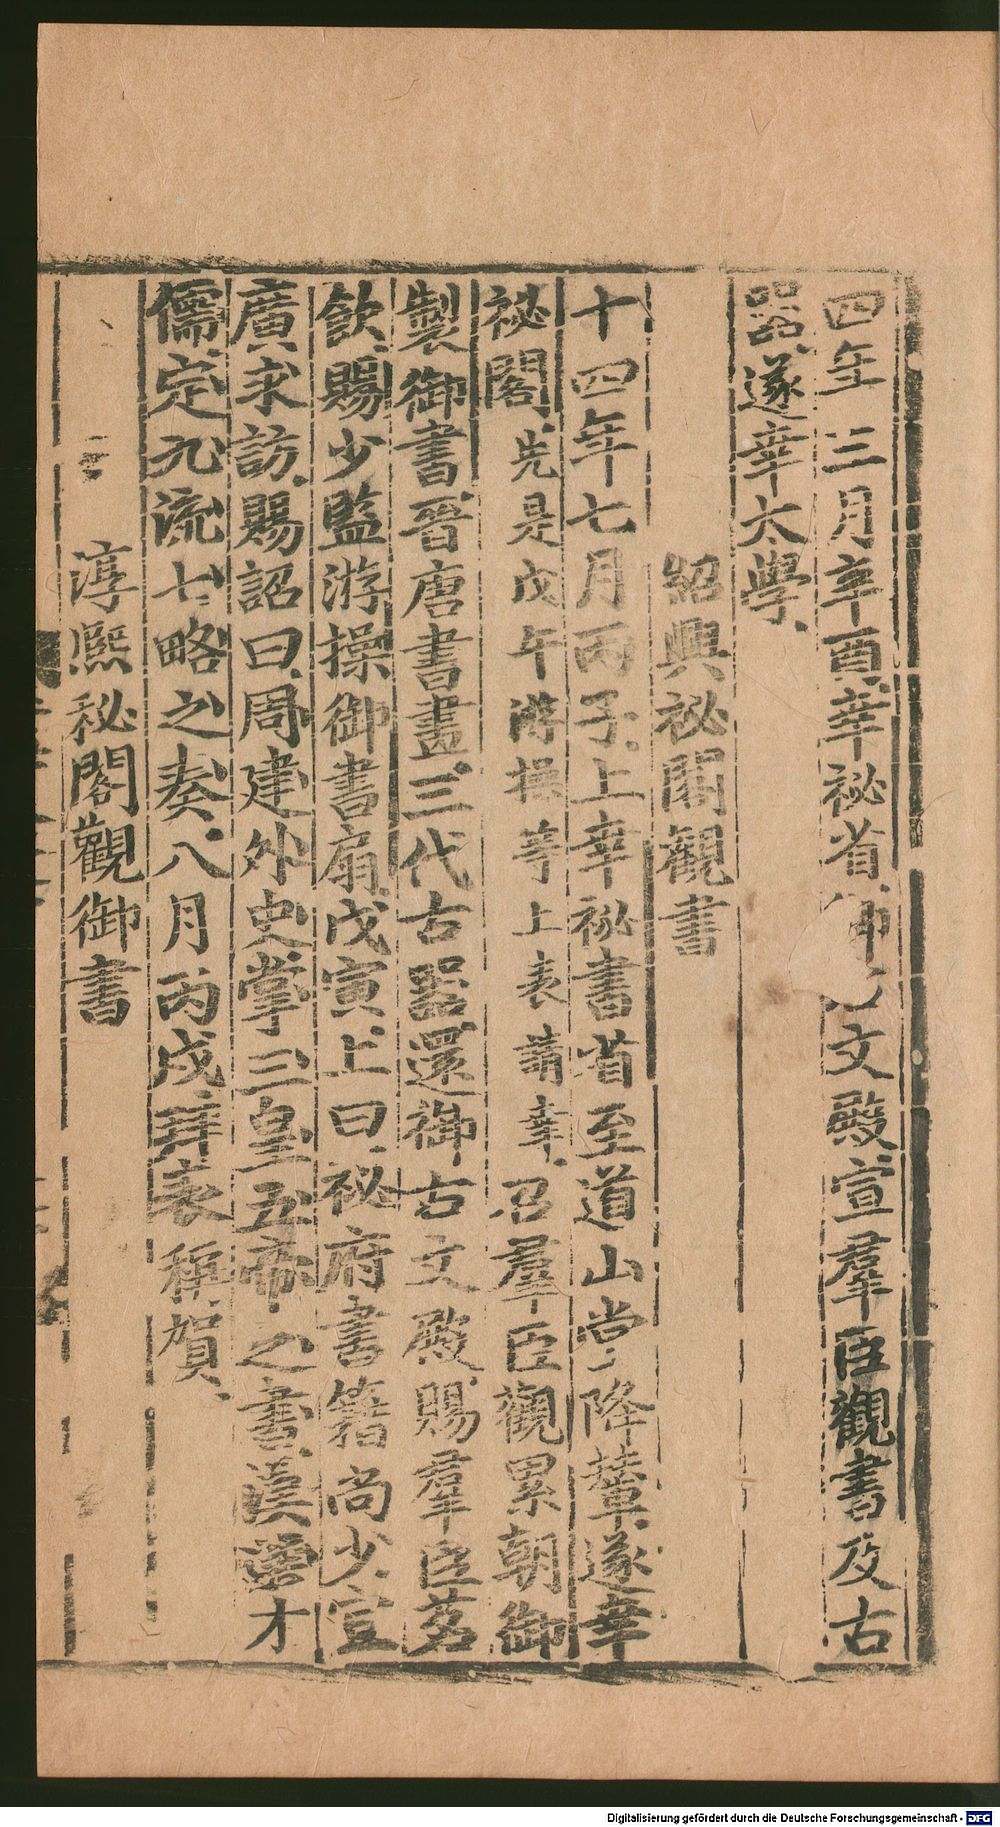 四年三月辛酉幸祕省御文殿宣羣臣觀書及古
器遂幸太學
紹興祕閣觀書
十四年七月丙子上幸祕書省至道山堂降輦遂幸
祕閣先是戊午游操等上表請幸召羣臣觀累朝御
製御書晉唐書畫三代古器還御古文殿賜羣臣茗
飲賜少監游操御書扇戊寅上曰祕府書籍尚少宜
廣求訪賜詔曰周建外史掌三皇五帝之書漢選才
儒定九流七略之奏八月丙戌拜表稱賀
淳熙秘閣觀御書
Digitalisierung gefördert durch die Deutsche Forschungsgemeinschaft - DFG